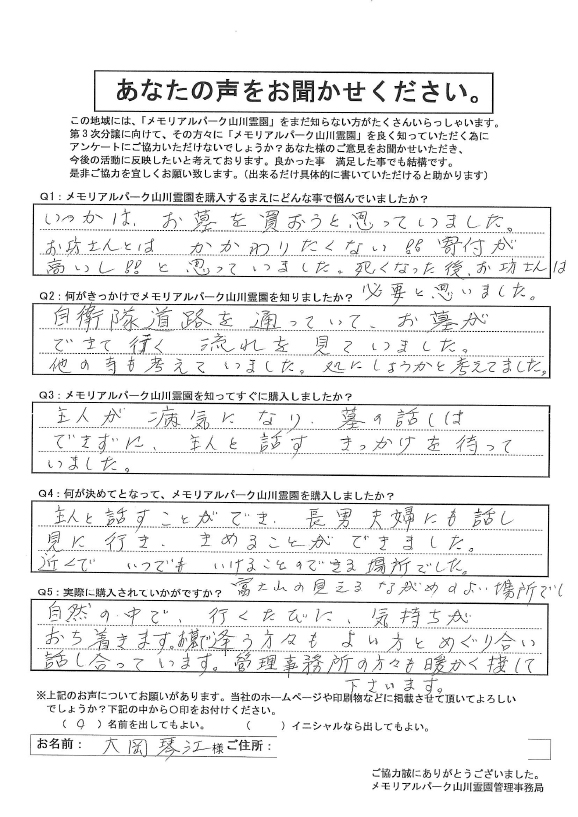 あなたの声をお聞かせください。
この地域には、「メモリアルパーク山川霊園」をまだ知らない方がたくさんいらっしゃいます。
第3次分譲に向けて、その方々に「メモリアルパーク山川霊園」を良く知っていただく為に
アンケートにご協力いただけないでしょうか？あなたのご意見をお聞かせいただき、
今後の活動に反映したいと考えております。良かった事　満足した事でも結構です。
是非ご協力を宜しくお願い致します。（出来るだけ具体的に書いていただけると助かります）
Q1：メモリアルパーク山川霊園を購入するまえにどんな事で悩んでいましたか？
いつかは、お墓を買おうと思っていました。
お坊さんとは　かかわりたくない!!　寄付が
高いし!!　と思っていました。死くなった後、お坊さんは
必要と思いました。
Q2：何がきっかけでメモリアルパーク山川霊園を知りましたか？
自衛隊道路を通っていて、お墓が
できて行く　流れを見ていました。
他の寺も考えていました。処にしようかと考えてました。
Q3：メモリアルパーク山川霊園を知ってすぐに購入しましたか？
主人が　病気になり、墓の話しは
できずに、主人と話す　きっかけを待って
いました。
Q4：何が決めてとなって、メモリアルパーク山川霊園を購入しましたか？
主人と話すことができ、長男夫婦にも話し
見に行き、きめることができました。
近くで　いつでも　いけることのできる場所でした。
富士山の見える　ながめのよい場所でし
Q5：実際に購入されていかがですか？
自然の中で、行くたびに、気持ちが
おち着きます。お墓で逢う方々も　よい方とめぐり合い
話し合っています。管理事務所の方々も暖かく接して
下さいます。
※上記のお声についてお願いがあります。当社のホームページや印刷物などに掲載させて頂いてよろしい
でしょうか？下記の中から○印をお付けください。
（○）名前を出してもよい。　（　　）イニシャルなら出してもよい。
お名前：大岡琴江様ご住所：
ご協力誠にありがとうございました。
メモリアルパーク山川霊園管理事務局